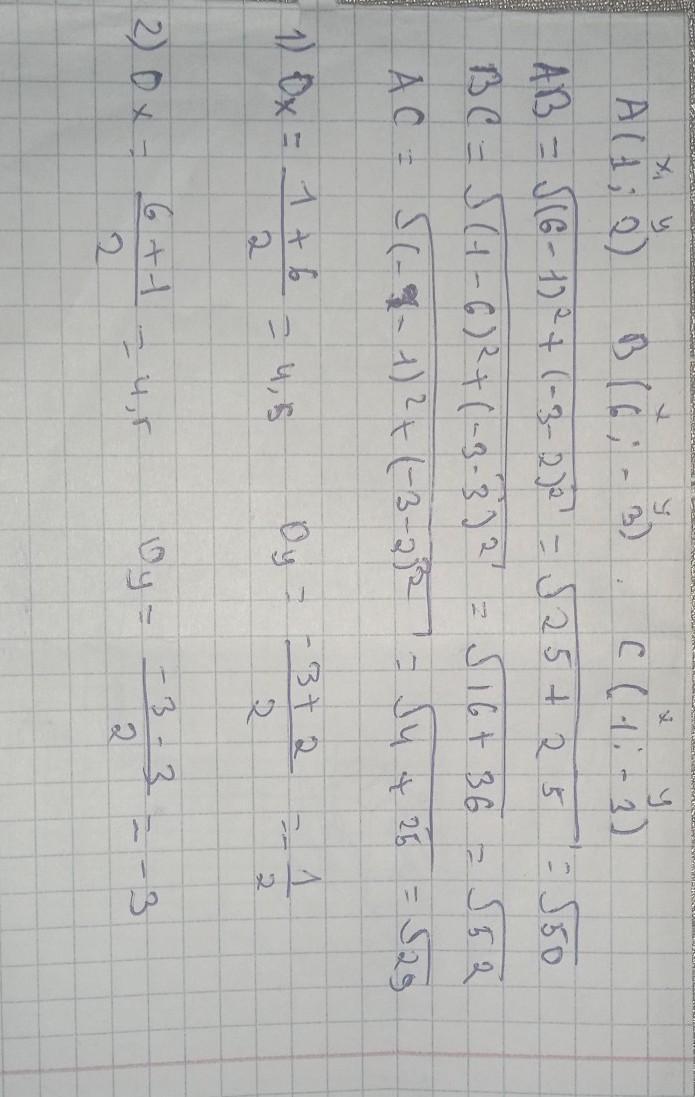 x₁ y x y x y
A(1; 2) B(6; -3). C(1; -3)
AB = √(6-1)² + (-3-2)² = √25 + 25 = √50
BC = √(1-6)² + (-3-3)² = √16 + 36 = √52
AC = √(-1)² + (-3-2)² = √4 + 25 = √29
1) Ox = 1 + 6 / 2 = 4,5 Oy = -3 + 2 / 2 = -1/2
2) Ox = 6 + 1 / 2 = 4,5 Oy = -3 - 3 / 2 = -3